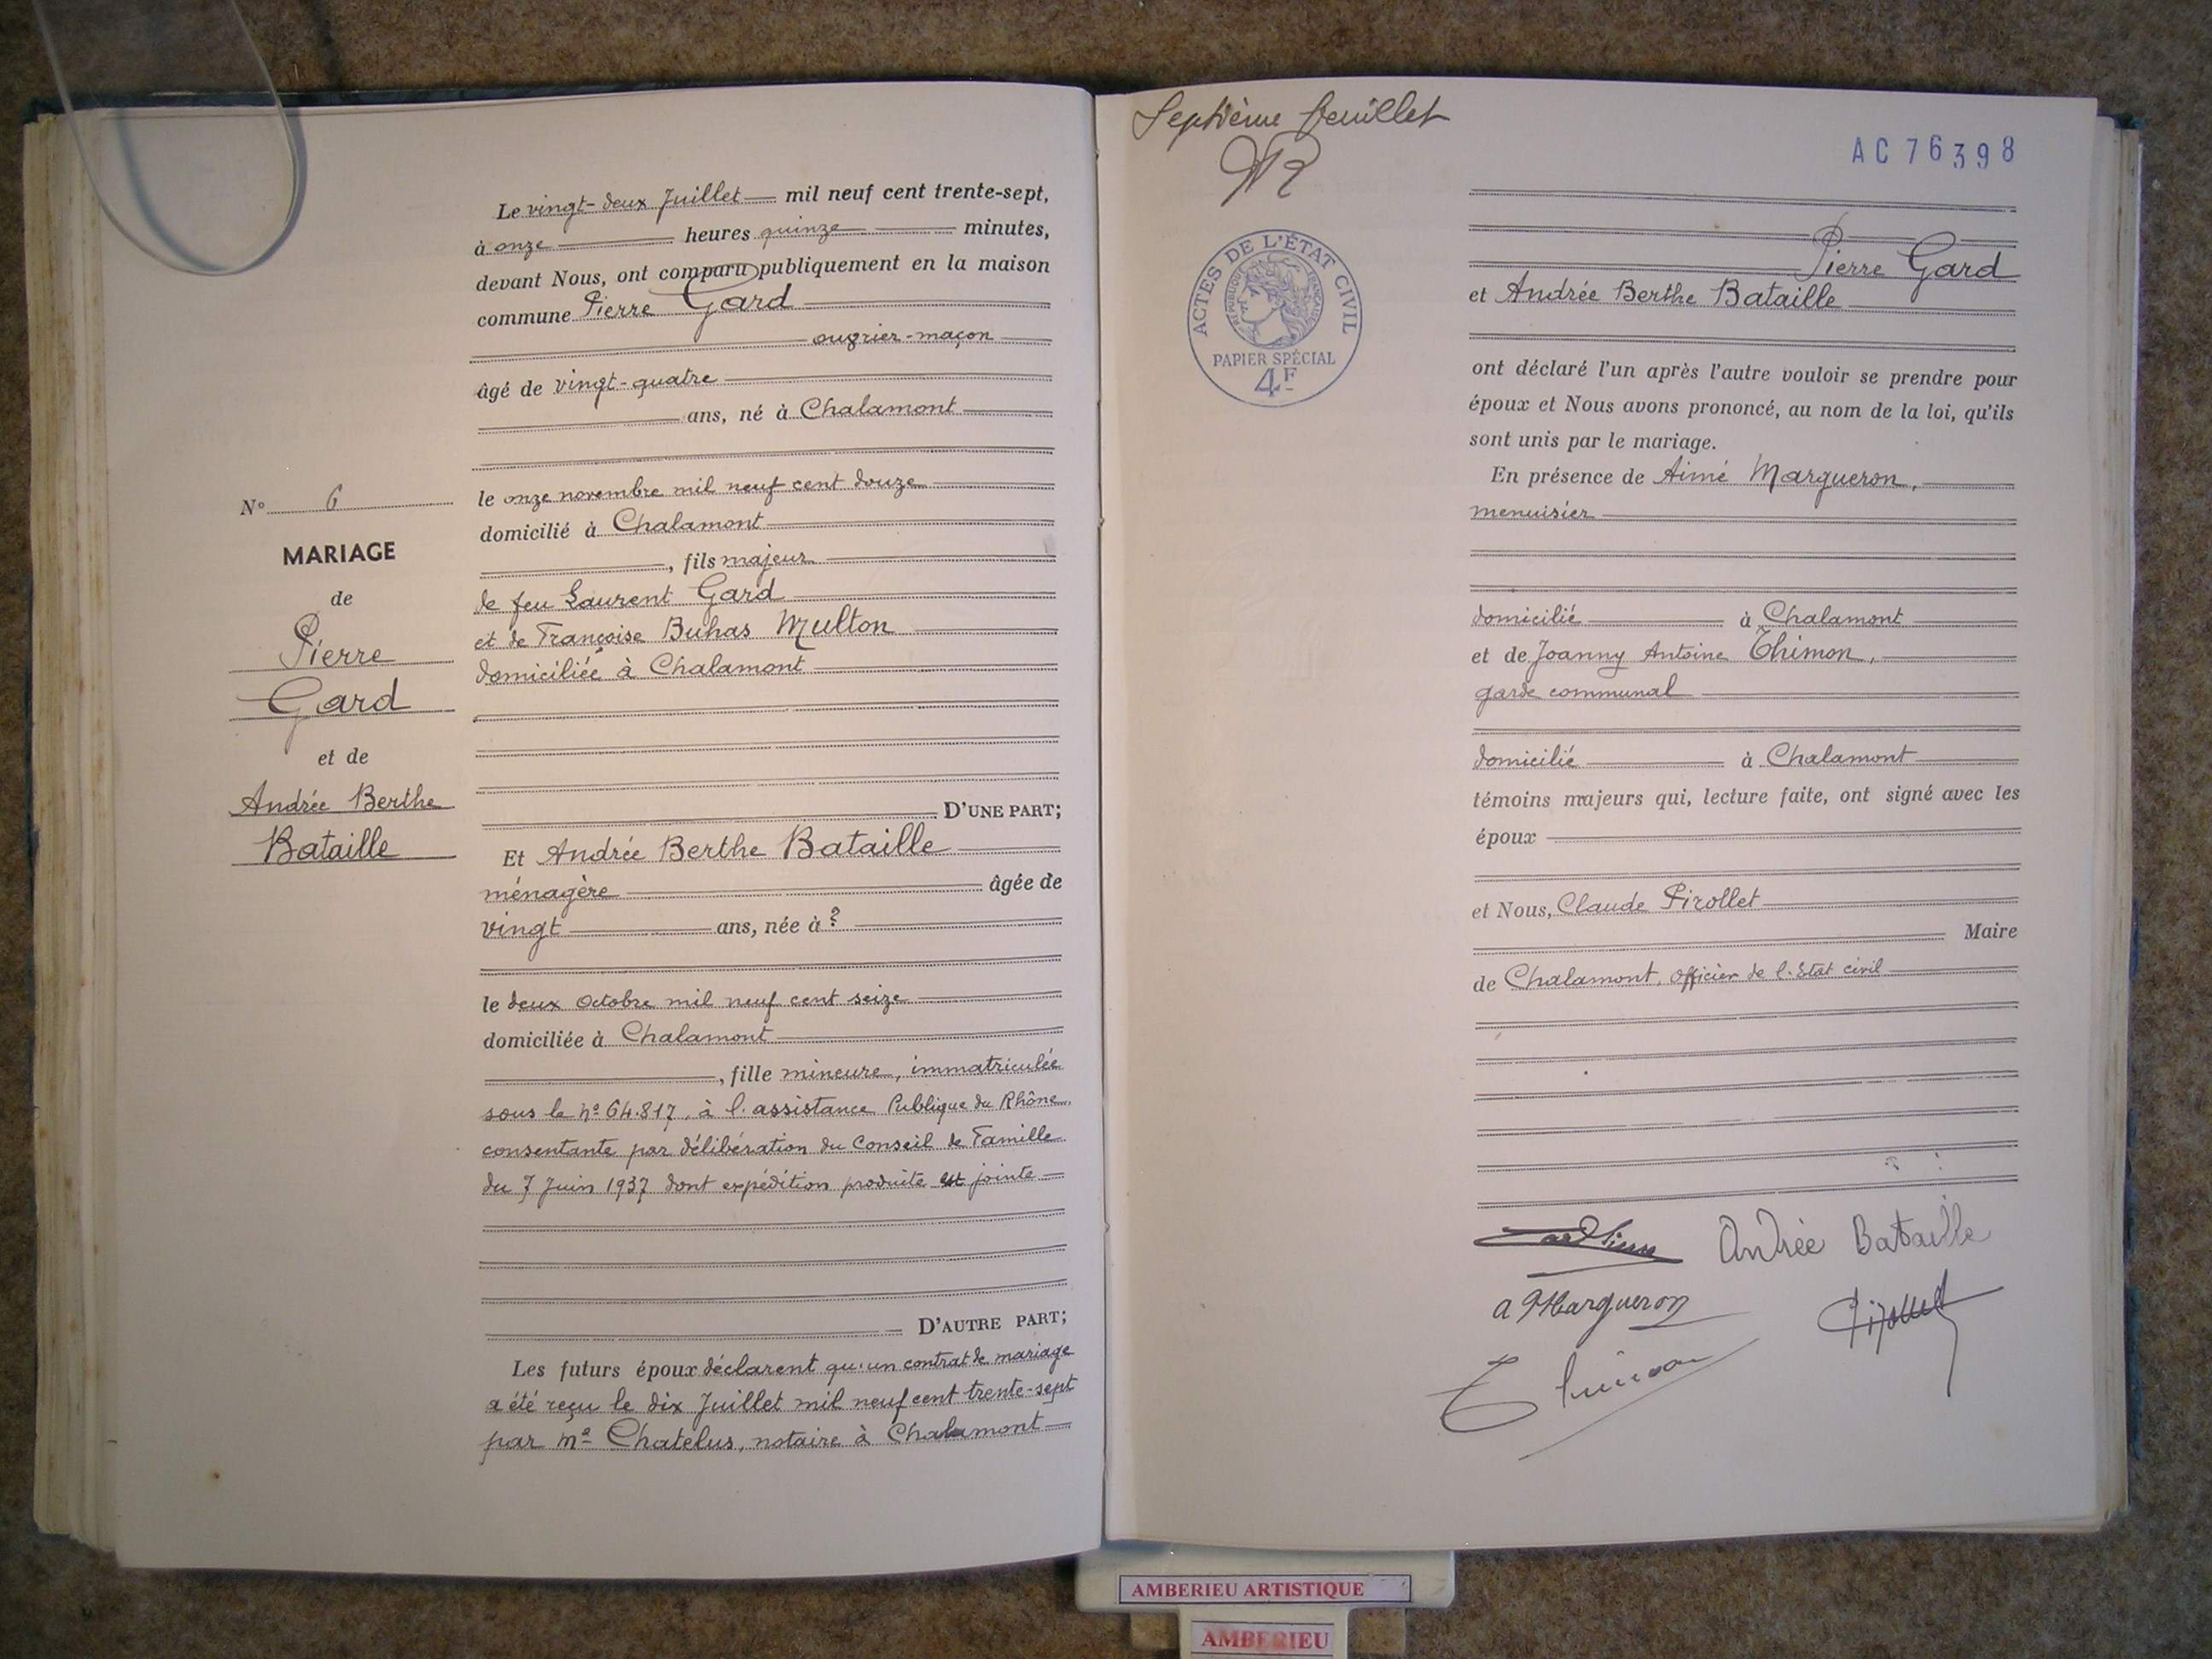 N° 6
MARIAGE
de
Pierre
Gard
et de
Andrée Berthe
Bataille
Le vingt-deux Juillet mil neuf cent trente-sept,
à onze heures quinze minutes,
devant Nous, ont comparu publiquement en la maison
commune Pierre Gard
ouvrier-maçon
âgé de vingt-quatre
ans, né à Chalamont
le onze novembre mil neuf cent douze
domicilié à Chalamont
, fils majeur
de feu Laurent Gard
et de Françoise Buhas Multon
domiciliée à Chalamont
D'UNE PART;
Et Andrée Berthe Bataille
ménagère âgée de
vingt ans, née à ?
le deux Octobre mil neuf cent seize
domiciliée à Chalamont
, fille mineure, immatriculée
sous le n° 64.817, à l'assistance Publique du Rhône,
consentante par délibération du Conseil de Famille
du 7 Juin 1937 dont expédition produite est jointe
D'AUTRE PART;
Les futurs époux déclarent qu'un contrat de mariage
a été reçu le dix Juillet mil neuf cent trente-sept
par Me Chatelus, notaire à Chalamont
Septième feuillet
AC 76398
ACTES DE L'ÉTAT CIVIL
RÉPUBLIQUE FRANÇAISE
PAPIER SPÉCIAL
4F
Pierre Gard
et Andrée Berthe Bataille
ont déclaré l'un après l'autre vouloir se prendre pour
époux et Nous avons prononcé, au nom de la loi, qu'ils
sont unis par le mariage.
En présence de Aimé Margueron,
menuisier
domicilié à Chalamont
et de Joanny Antoine Thimon,
garde communal
domicilié à Chalamont
témoins majeurs qui, lecture faite, ont signé avec les
époux
et Nous, Claude Pirollet
Maire
de Chalamont, officier de l'Etat civil
Gard Pierre Andrée Bataille
a Margueron Pirollet
Thimon
AMBERIEU ARTISTIQUE
AMBERIEU